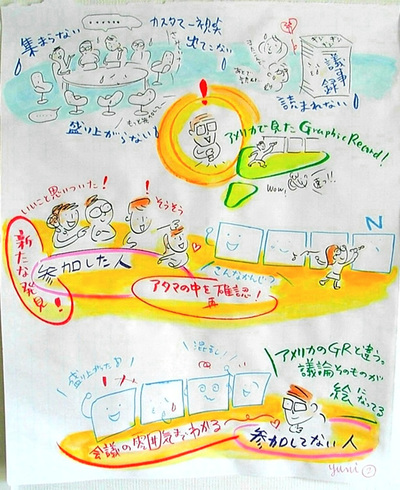 ……
集まらない
カスタマー視点
出てこない
ザンザン
議事録
読まれない
もっと奇ばつで〜
盛り上がらない
!
アメリカで見たGraphic Record!
Wow,
画!!
いいこと思いついた!
!
!
そうそう
N
新たな発見!
参加した人
こんなかんじ?
アタマの中を再確認!
盛り上がったね!
混乱!
アメリカのGRと違う。
議論そのものが
絵に
なってる
会議の雰囲気までわかる
参加してない人
yuni ②